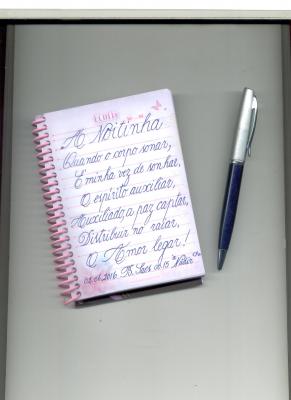 A Noitinha
Quando o corpo sonar,
É minha vez de sonhar,
O espírito auxiliar,
Auxiliado, a paz captar,
Distribuir no raiar,
O Amor legar!